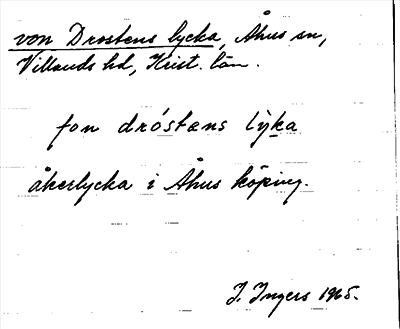 von Drostens lycka, Åhus sn,
Villands hd, Krist. län.
fon dróstæns lỳka
åkerlycka i Åhus köping.
I. Ingers 1965.